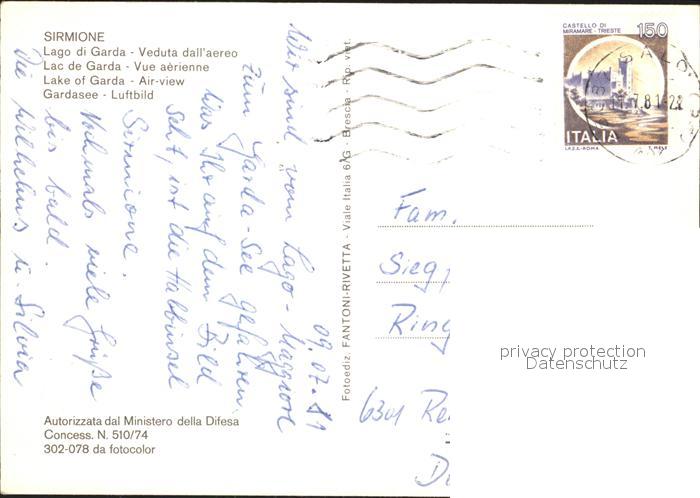 SIRMIONE
Lago di Garda - Veduta dall'aereo
Lac de Garda - Vue aèrienne
Lake of Garda - Air-view
Gardasee - Luftbild
09.07.81
Wir sind vom Lago-Maggiore
zum Garda-See gefahren.
Was Ihr auf dem Bild
seht, ist die Halbinsel
Sirmione.
Nochmals viele Grüße
bis bald.
Die Wilhelms u. Silvia
Autorizzata dal Ministero della Difesa
Concess. N. 510/74
302-078 da fotocolor
Fotoediz. FANTONI-RIVETTA - Viale Italia 6/G - Brescia - Rip. viet.
CASTELLO DI
MIRAMARE - TRIESTE
150
ITALIA
I.P.Z.S.-ROMA
Fam.
Sieg
Ring
6301 Re
privacy protection
Datenschutz